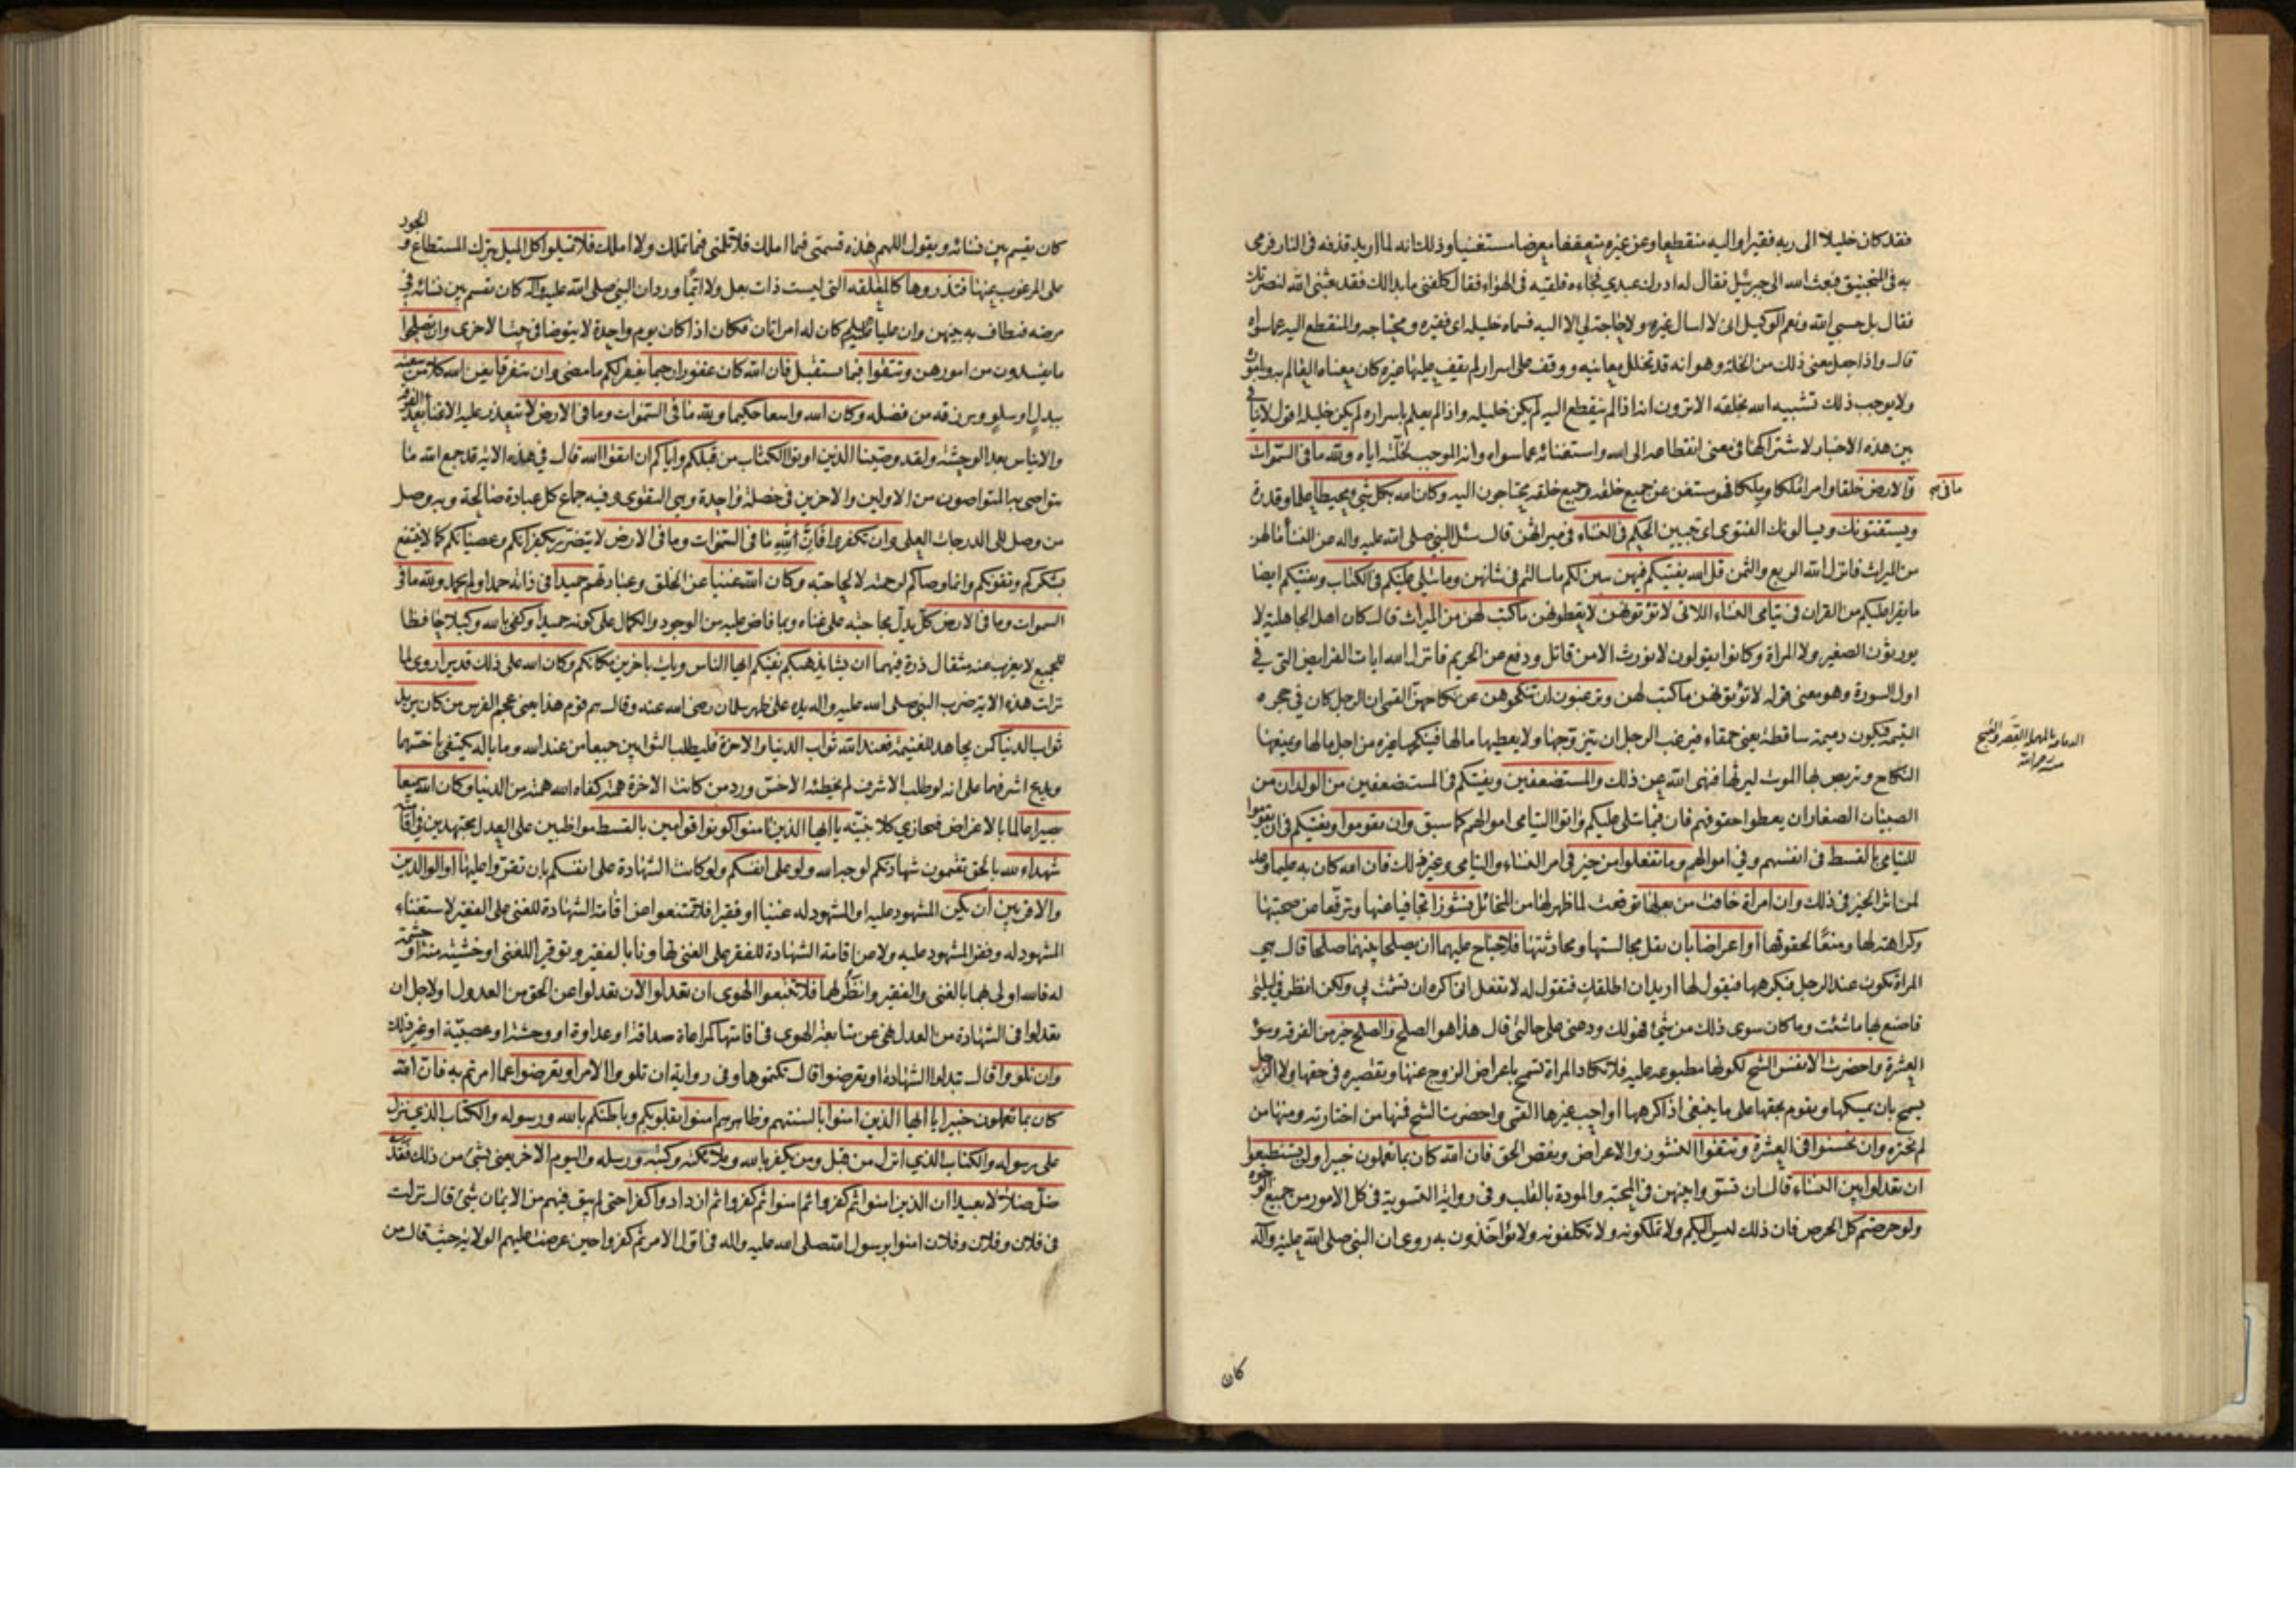 فقد كان خليلا الى ربه فقيرا واليه منقطعا وعن غيره متعففا معرضا مستغنيا وذلك انه لما اريد قذفه في النار فرمى
به في المنجنيق فبعث الله الى جبرئيل فقال له ادرك عبدي فجاءه فلقيه في الهواء فقال كلفني ما بدا لك فقد بعثني الله لنصرتك
فقال بل حسبي الله ونعم الوكيل اني لا اسال غيره ولا حاجة لي الا اليه فسماه خليله اي فقيره ومحتاجه والمنقطع اليه عما سواه
قال واذا جعل معنى ذلك من الخلة وهو انه قد تخلل معانيه ووقف على اسرار لم يقف عليها غيره كان معناه العالم به وباموره
ولا يوجب ذلك تشبيه الله بخلقه الا ترون انه اذا لم ينقطع اليه لم يكن خليله واذا لم يعلم باسراره لم يكن خليله اقول لا تنافي
بين هذه الاخبار لاشتراكها في معنى انقطاعه الى الله واستغنائه عما سواه وانه الموجب لخلته اياه ولله ما في السموات
وما في الارض خلقا وامرا ملكا وملكا فهو مستغن عن جميع خلقه وجميع خلقه محتاجون اليه وكان الله بكل شيء محيطا علما وقدرة
ويستفتونك ويسالونك الفتوى اي تبيين الحكم في النساء في ميراثهن قال سئل النبي صلى الله عليه واله عن النساء ما لهن
من الميراث فانزل الله الربع والثمن قل الله يفتيكم فيهن يبين لكم ما سالتم في شانهن وما يتلى عليكم في الكتاب ويفتيكم ايضا
ما يقرا عليكم من القران في يتامى النساء اللاتي لا تؤتونهن لا يعطونهن ما كتب لهن من الميراث قال كان اهل الجاهلية لا
يورثون الصغير ولا المراة وكانوا يقولون لا نورث الا من قاتل ودفع عن الحريم فانزل الله ايات الفرايض التي في
اول السورة وهو معنى قوله لا تؤتونهن ما كتب لهن وترغبون ان تنكحوهن عن نكاحهن القمي ان الرجل كان في حجره
اليتيمة فيكون دميمة ساقطة يعني حمقاء فيرغب الرجل ان يتزوجها ولا يعطيها مالها فينكحها غيره من اجل مالها ويمنعها
النكاح ويتربص بها الموت ليرثها فنهى الله عن ذلك والمستضعفين ويفتيكم في المستضعفين من الولدان من
الصبيان الصغار ان يعطوا حقوقهم فان فيما يتلى عليكم واتوا اليتامى اموالهم كما سبق وان تقوموا ويفتيكم في ان تقوموا
لليتامى بالقسط في انفسهم وفي اموالهم وما تفعلوا من خير في امر النساء واليتامى وغير ذلك فان الله كان به عليما وعد
لمن اثر الخير في ذلك وان امراة خافت من بعلها توقعت لما ظهر لها من المخائل نشوزا تجافيا عنها وترفعا عن صحبتها
وكراهة لها ومنعا لحقوقها او اعراضا بان يقل مجالستها ومحادثتها فلا جناح عليهما ان يصلحا بينهما صلحا قال هي
المراة تكون عند الرجل فيكرهها فيقول لها اريد ان اطلقك فتقول له لا تفعل اني اكره ان تشمت بي ولكن انظر في ليلتي
فاصنع بها ما شئت وما كان سوى ذلك من شيء فهو لك ودعني على حالتي قال هذا هو الصلح والصلح خير من الفرقة وسوء
العشرة واحضرت الانفس الشح لكونها مطبوعة عليه فلا تكاد المراة تسمح باعراض الزوج عنها وتقصيره في حقها ولا الرجل
يسمح بان يمسكها ويقوم بحقها على ما ينبغي اذا كرهها او احب غيرها القمي واحضرت الشح فمنها من اختارته ومنها من
لم تختره وان تحسنوا في العشرة وتتقوا النشوز والاعراض ونقص الحق فان الله كان بما تعملون خبيرا ولن تستطيعوا
ان تعدلوا بين النساء قال ان تسووا بينهن في المحبة والمودة بالقلب وفي رواية التسوية في كل الامور من جميع الوجوه
ولو حرصتم كل الحرص فان ذلك ليس اليكم ولا تملكونه ولا تكلفونه ولا تؤاخذون به روي ان النبي صلى الله عليه وآله
كان
كان يقسم بين نسائه ويقول اللهم هذه قسمتي فيما املك فلا تلمني فيما تملك ولا املك فلا تميلوا كل الميل بترك المستطاع والجور
على المرغوب عنها فتذروها كالمعلقة التي ليست ذات بعل ولا ايما ورد ان النبي صلى الله عليه وآله كان يقسم بين نسائه في
مرضه فيطاف به بينهن وان عليا كان له امراتان فكان اذا كان يوم واحدة لا يتوضا في بيت الاخرى وان تصلحوا
ما تفسدون من امورهن وتتقوا فيما يستقبل فان الله كان غفورا رحيما يغفر لكم ما مضى وان يتفرقا يغن الله كلا من سعته
ببدل او سلو ويرزقه من فضله وكان الله واسعا حكيما ولله ما في السموات وما في الارض لا يتعذر عليه الاغناء بعد الفرقة
والايناس بعد الوحشة ولقد وصينا الذين اوتوا الكتاب من قبلكم واياكم ان اتقوا الله قال في هذه الاية قد جمع الله ما
يتواصى به المتواصون من الاولين والاخرين في خصلة واحدة وهي التقوى وفيه جماع كل عبادة صالحة وبه وصل
من وصل الى الدرجات العلى وان تكفروا فان لله ما في السموات وما في الارض لا يتضرر بكفرانكم وعصيانكم كما لا ينتفع
بشكركم وتقويكم وانما وصاكم لرحمته لا لحاجته وكان الله غنيا عن الخلق وعبادتهم حميدا في ذاته حمد او لم يحمد ولله ما في
السموات وما في الارض كل يدل بحاجته على غناه وبما فاض عليه من الوجود والكمال على كونه حميدا وكفى بالله وكيلا حافظا
للجميع لا يعزب عنه مثقال ذرة فيهما ان يشا يذهبكم يفنيكم ايها الناس ويات باخرين مكانكم وكان الله على ذلك قديرا روي لما
نزلت هذه الاية ضرب النبي صلى الله عليه واله يده على ظهر سلمان رضي الله عنه وقال هم قوم هذا يعني عجم الفرس من كان يريد
ثواب الدنيا كمن يجاهد للغنيمة فعند الله ثواب الدنيا والاخرة فليطلب الثوابين جميعا من عند الله وما باله يكتفي باخسهما
ويدع اشرفهما على انه لو طلب الاشرف لم يخطئه الاخس ورد من كانت الاخرة همته كفاه الله همته من الدنيا وكان الله سميعا
بصيرا عالما بالاغراض فيجازي كلا بنيته يا ايها الذين امنوا كونوا قوامين بالقسط مواظبين على العدل مجتهدين في اقامته
شهداء لله بالحق تقيمون شهادتكم لوجه الله ولو على انفسكم ولو كانت الشهادة على انفسكم بان تقروا عليها او الوالدين
والاقربين ان يكن المشهود عليه او المشهود له غنيا او فقيرا فلا تمتنعوا عن اقامة الشهادة للغني على الفقير لاستغناء
المشهود له وفقر المشهود عليه ولا عن اقامة الشهادة للفقير على الغني تهاونا بالفقير وتوقيرا للغني او خشية منه او حشمة
له فالله اولى بهما بالغني والفقير وانظر لهما فلا تتبعوا الهوى ان تعدلوا لان تعدلوا عن الحق من العدول او لاجل ان
تعدلوا في الشهادة من العدل نهى عن متابعة الهوى في اقامتها كمراعاة صداقة او عداوة او وحشة او عصبية او غير ذلك
وان تلووا قال تبدلوا الشهادة او تعرضوا قال تكتموها وفي رواية ان تلووا الامر او تعرضوا عما امرتم به فان الله
كان بما تعملون خبيرا يا ايها الذين امنوا بالسنتهم وظاهرهم امنوا بقلوبكم وباطنكم بالله ورسوله والكتاب الذي نزل
على رسوله والكتاب الذي انزل من قبل ومن يكفر بالله وملائكته وكتبه ورسله واليوم الاخر يعني بشيء من ذلك فقد
ضل ضلالا بعيدا ان الذين امنوا ثم كفروا ثم امنوا ثم كفروا ثم ازدادوا كفرا حتى لم يبق فيهم من الايمان شيء قال نزلت
في فلان وفلان وفلان امنوا برسول الله صلى الله عليه واله في اول الامر ثم كفروا حين عرضت عليهم الولاية حيث قال من